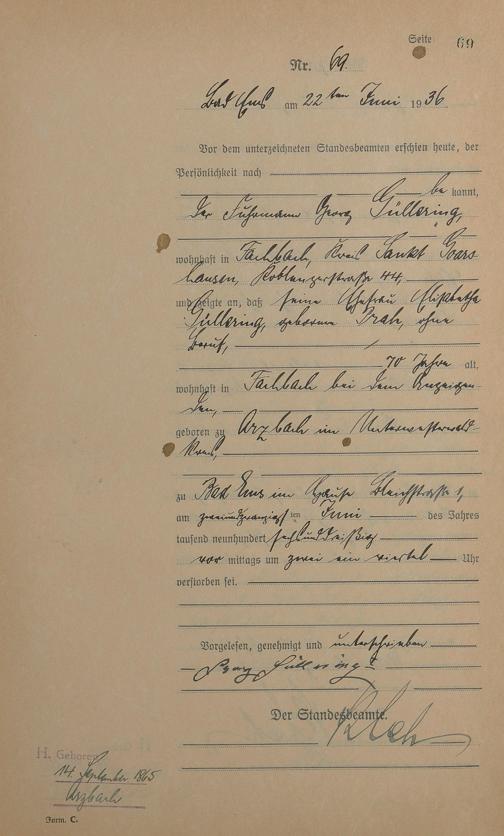 Seite 69
Nr. 69
Bad Ems am 22ten Juni 1936
Vor dem unterzeichneten Standesbeamten erschien heute, der
Persönlichkeit nach
be kannt,
der Fuhrmann Georg Güllering,
wohnhaft in Fachbach, Kreis Sankt Goars-
hausen, Koblenzerstraße 44,
und zeigte an, daß seine Ehefrau Elisabetha
Güllering, geborene , ohne
Beruf,
70 Jahre alt,
wohnhaft in Fachbach bei dem Anzeigen-
den,
geboren zu Arzbach im Unterwesterwald-
kreis,
zu Bad Ems im Hause Bleichstraße 1,
am zweiundzwanzigsten Juni des Jahres
tausend neunhundert sechsunddreißig
vor mittags um zwei ein viertel Uhr
verstorben sei.
Vorgelesen, genehmigt und unterschrieben
Georg Güllering
Der Standesbeamte.
H. Geboren
14. September 1865
Arzbach
Form. C.